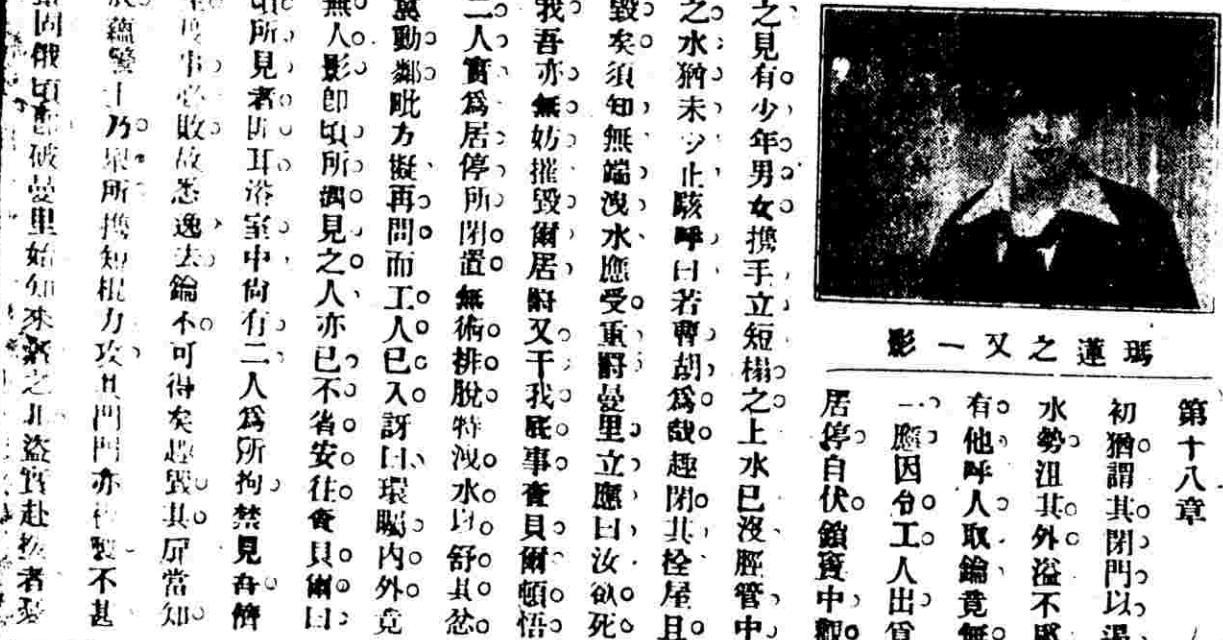 瑪蓮之又一影
第十八章
初猶謂其閉門以
水勢沮其外溢不
有他呼人取鑰竟無
一應因台工人出
居停自伏鎖竇中觀
之見有少年男女攜手立短榻之上水已沒脛管中
之水猶未少止駭呼曰若曹胡爲哉趣閉其栓屋且
毀矣須知無端洩水應受重罰曼里立應曰汝欲死
我吾亦無妨摧毀爾居又干我底事貝爾頓悟
二人實爲居停所閉置無術排脫特洩水以舒其忿
冀動鄰毗方擬再問而工人已入訝曰環矚内外竟
無人影即頃所見之人亦已不省安往貝爾曰
頃所見者耳浴室中尚有二人爲所拘禁見吾儕
事必敗故悉逸去鑰不可得矣趣毀其扉當知
警士乃所攜短棍力攻其門門亦不甚
固俄頃破曼里始知來者之非盜實赴援者